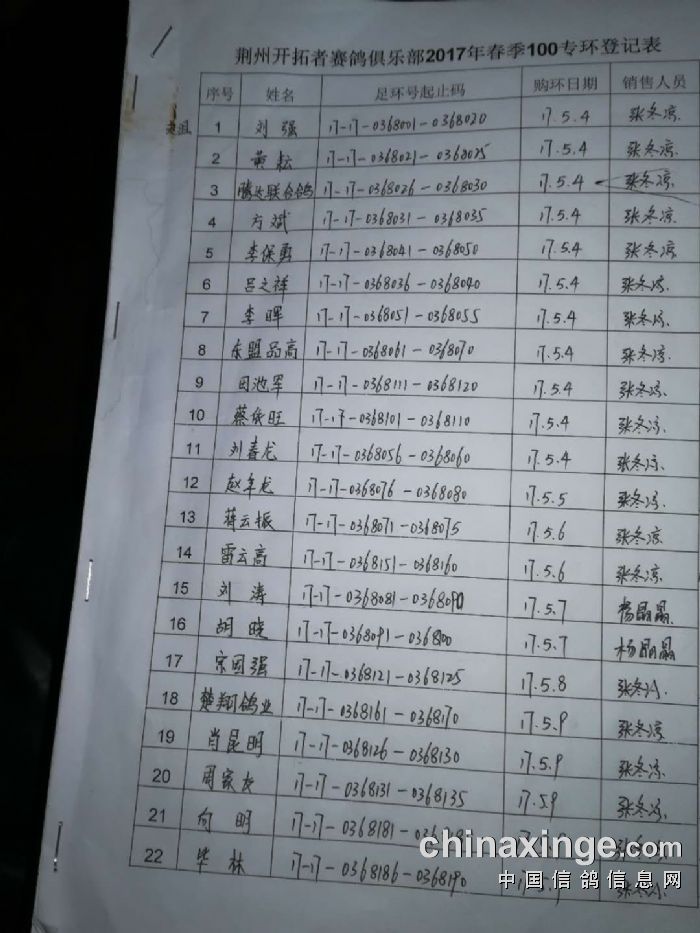 荆州开拓者赛鸽俱乐部2017年春季100专环登记表
序号 姓名 足环号起止码 购环日期 销售人员
1 刘强 17-17-0368001-0368020 17.5.4 张冬凉
2 黄耘 17-17-0368021-0368025 17.5.4 张冬凉
3 腾达联合鸽 17-17-0368026-0368030 17.5.4 张冬凉
4 方斌 17-17-0368031-0368035 17.5.4 张冬凉
5 李保勇 17-17-0368041-0368050 17.5.4 张冬凉
6 吕之祥 17-17-0368036-0368040 17.5.4 张冬凉
7 李晖 17-17-0368051-0368055 17.5.4 张冬凉
8 东盟品高 17-17-0368061-0368070 17.5.4 张冬凉
9 田池军 17-17-0368111-0368120 17.5.4 张冬凉
10 蔡依旺 17-17-0368101-0368110 17.5.4 张冬凉
11 刘喜龙 17-17-0368056-0368060 17.5.4 张冬凉
12 赵年龙 17-17-0368076-0368080 17.5.5 张冬凉
13 蒋云振 17-17-0368071-0368075 17.5.6 张冬凉
14 雷云高 17-17-0368151-0368160 17.5.6 张冬凉
15 刘涛 17-17-0368081-0368090 17.5.7 杨晶晶
16 胡晓 17-17-0368091-036800 17.5.7 杨晶晶
17 宗国强 17-17-0368121-0368125 17.5.8 张冬凉
18 楚翔鸽业 17-17-0368161-0368170 17.5.9 张冬凉
19 肖昆明 17-17-0368126-0368130 17.5.9 张冬凉
20 周家友 17-17-0368131-0368135 17.5.9 张冬凉
21 向明 17-17-0368181- 张冬凉
22 毕林 17-17-0368186-0368190 张冬凉
chinaxinge.com
中国信鸽信息网